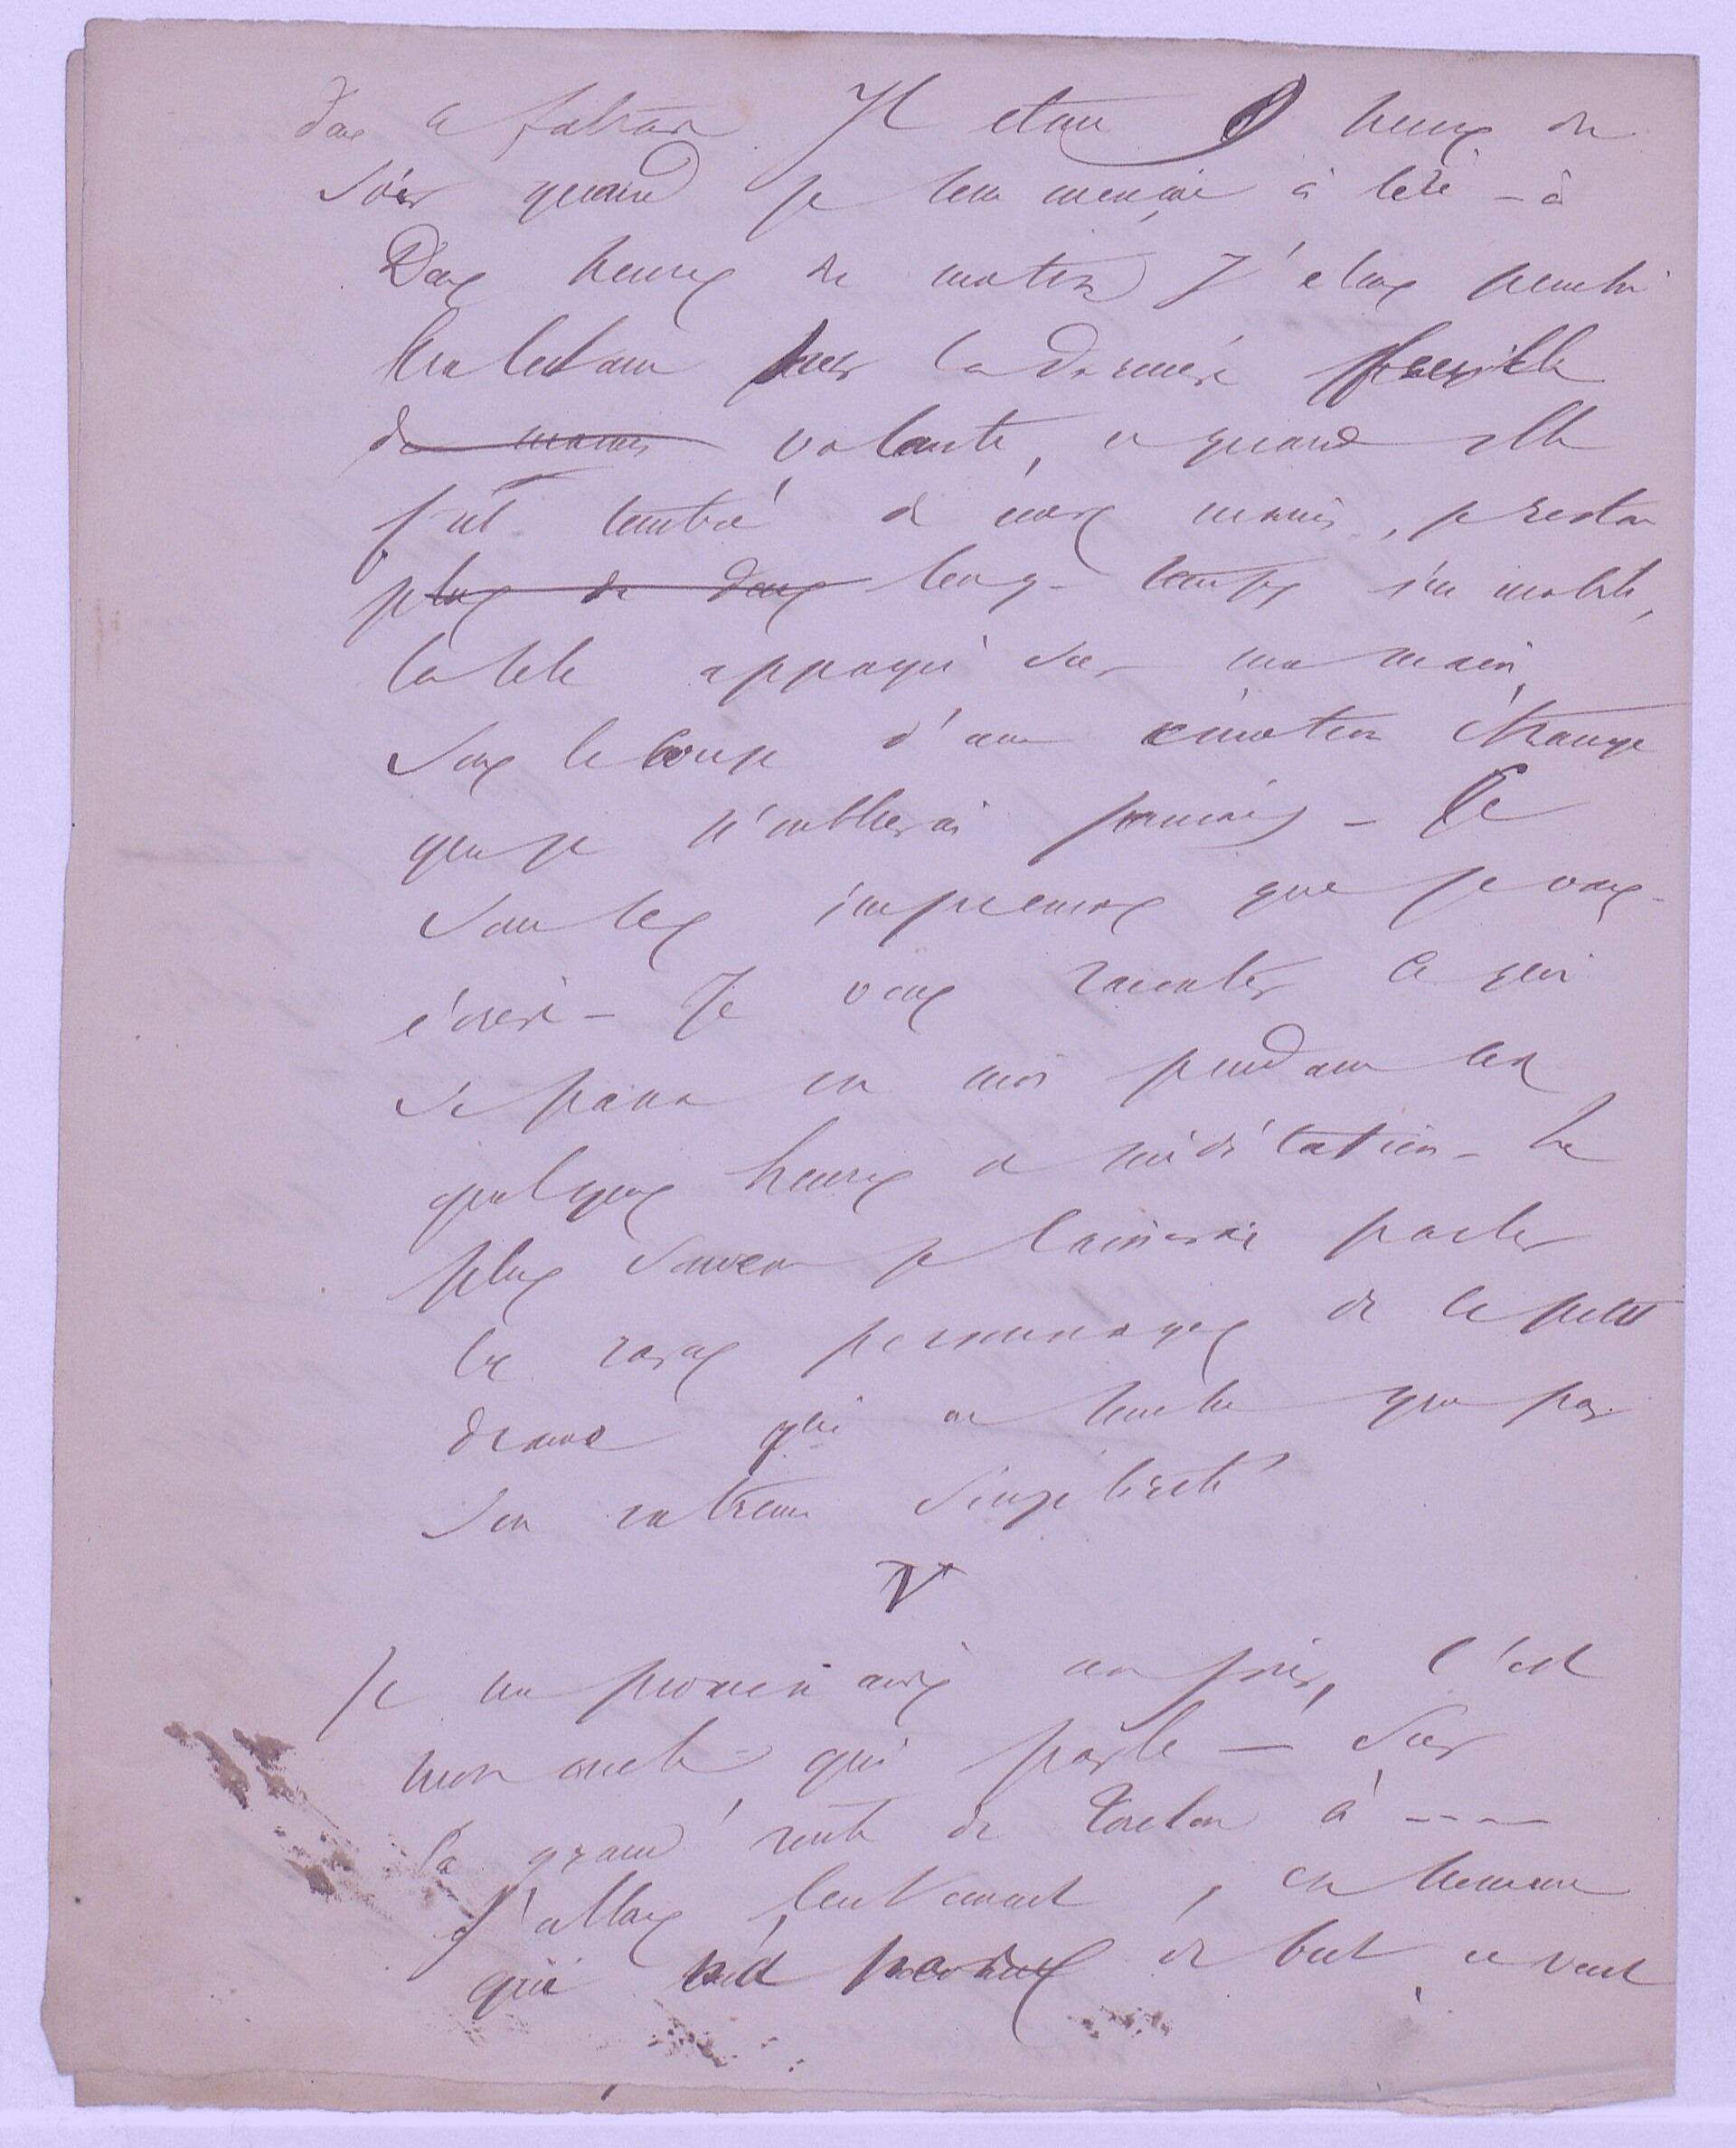 dans ce fatras Il etait 9 heures du
soir quand je commençai à lire - à
Deux heures du matin J'etais penché
haletant sur la dernière feuille
de mains volante, et quand elle
fut tombé de mes mains, je restai
plus de deux long-temps immobile,
la tete appuyé sur ma main,
sous le coup d'une émotion étrange
que je n'oublierai jamais - Ce
sont les impressions que je vous
écris - Je vous raconter ce qui
se passa en moi pendant ces
quelques heures de méditation - Le
plus souvent je laisserai parler
les rares personnages de ce petit
drame qui ne touche que par
son extreme simplicité
V
Je me promenais un soir, c'est
mon oncle qui parle - sur
la grand' route de Toulon à ----
J'allais lentement, en homme
qui n'a de but, et